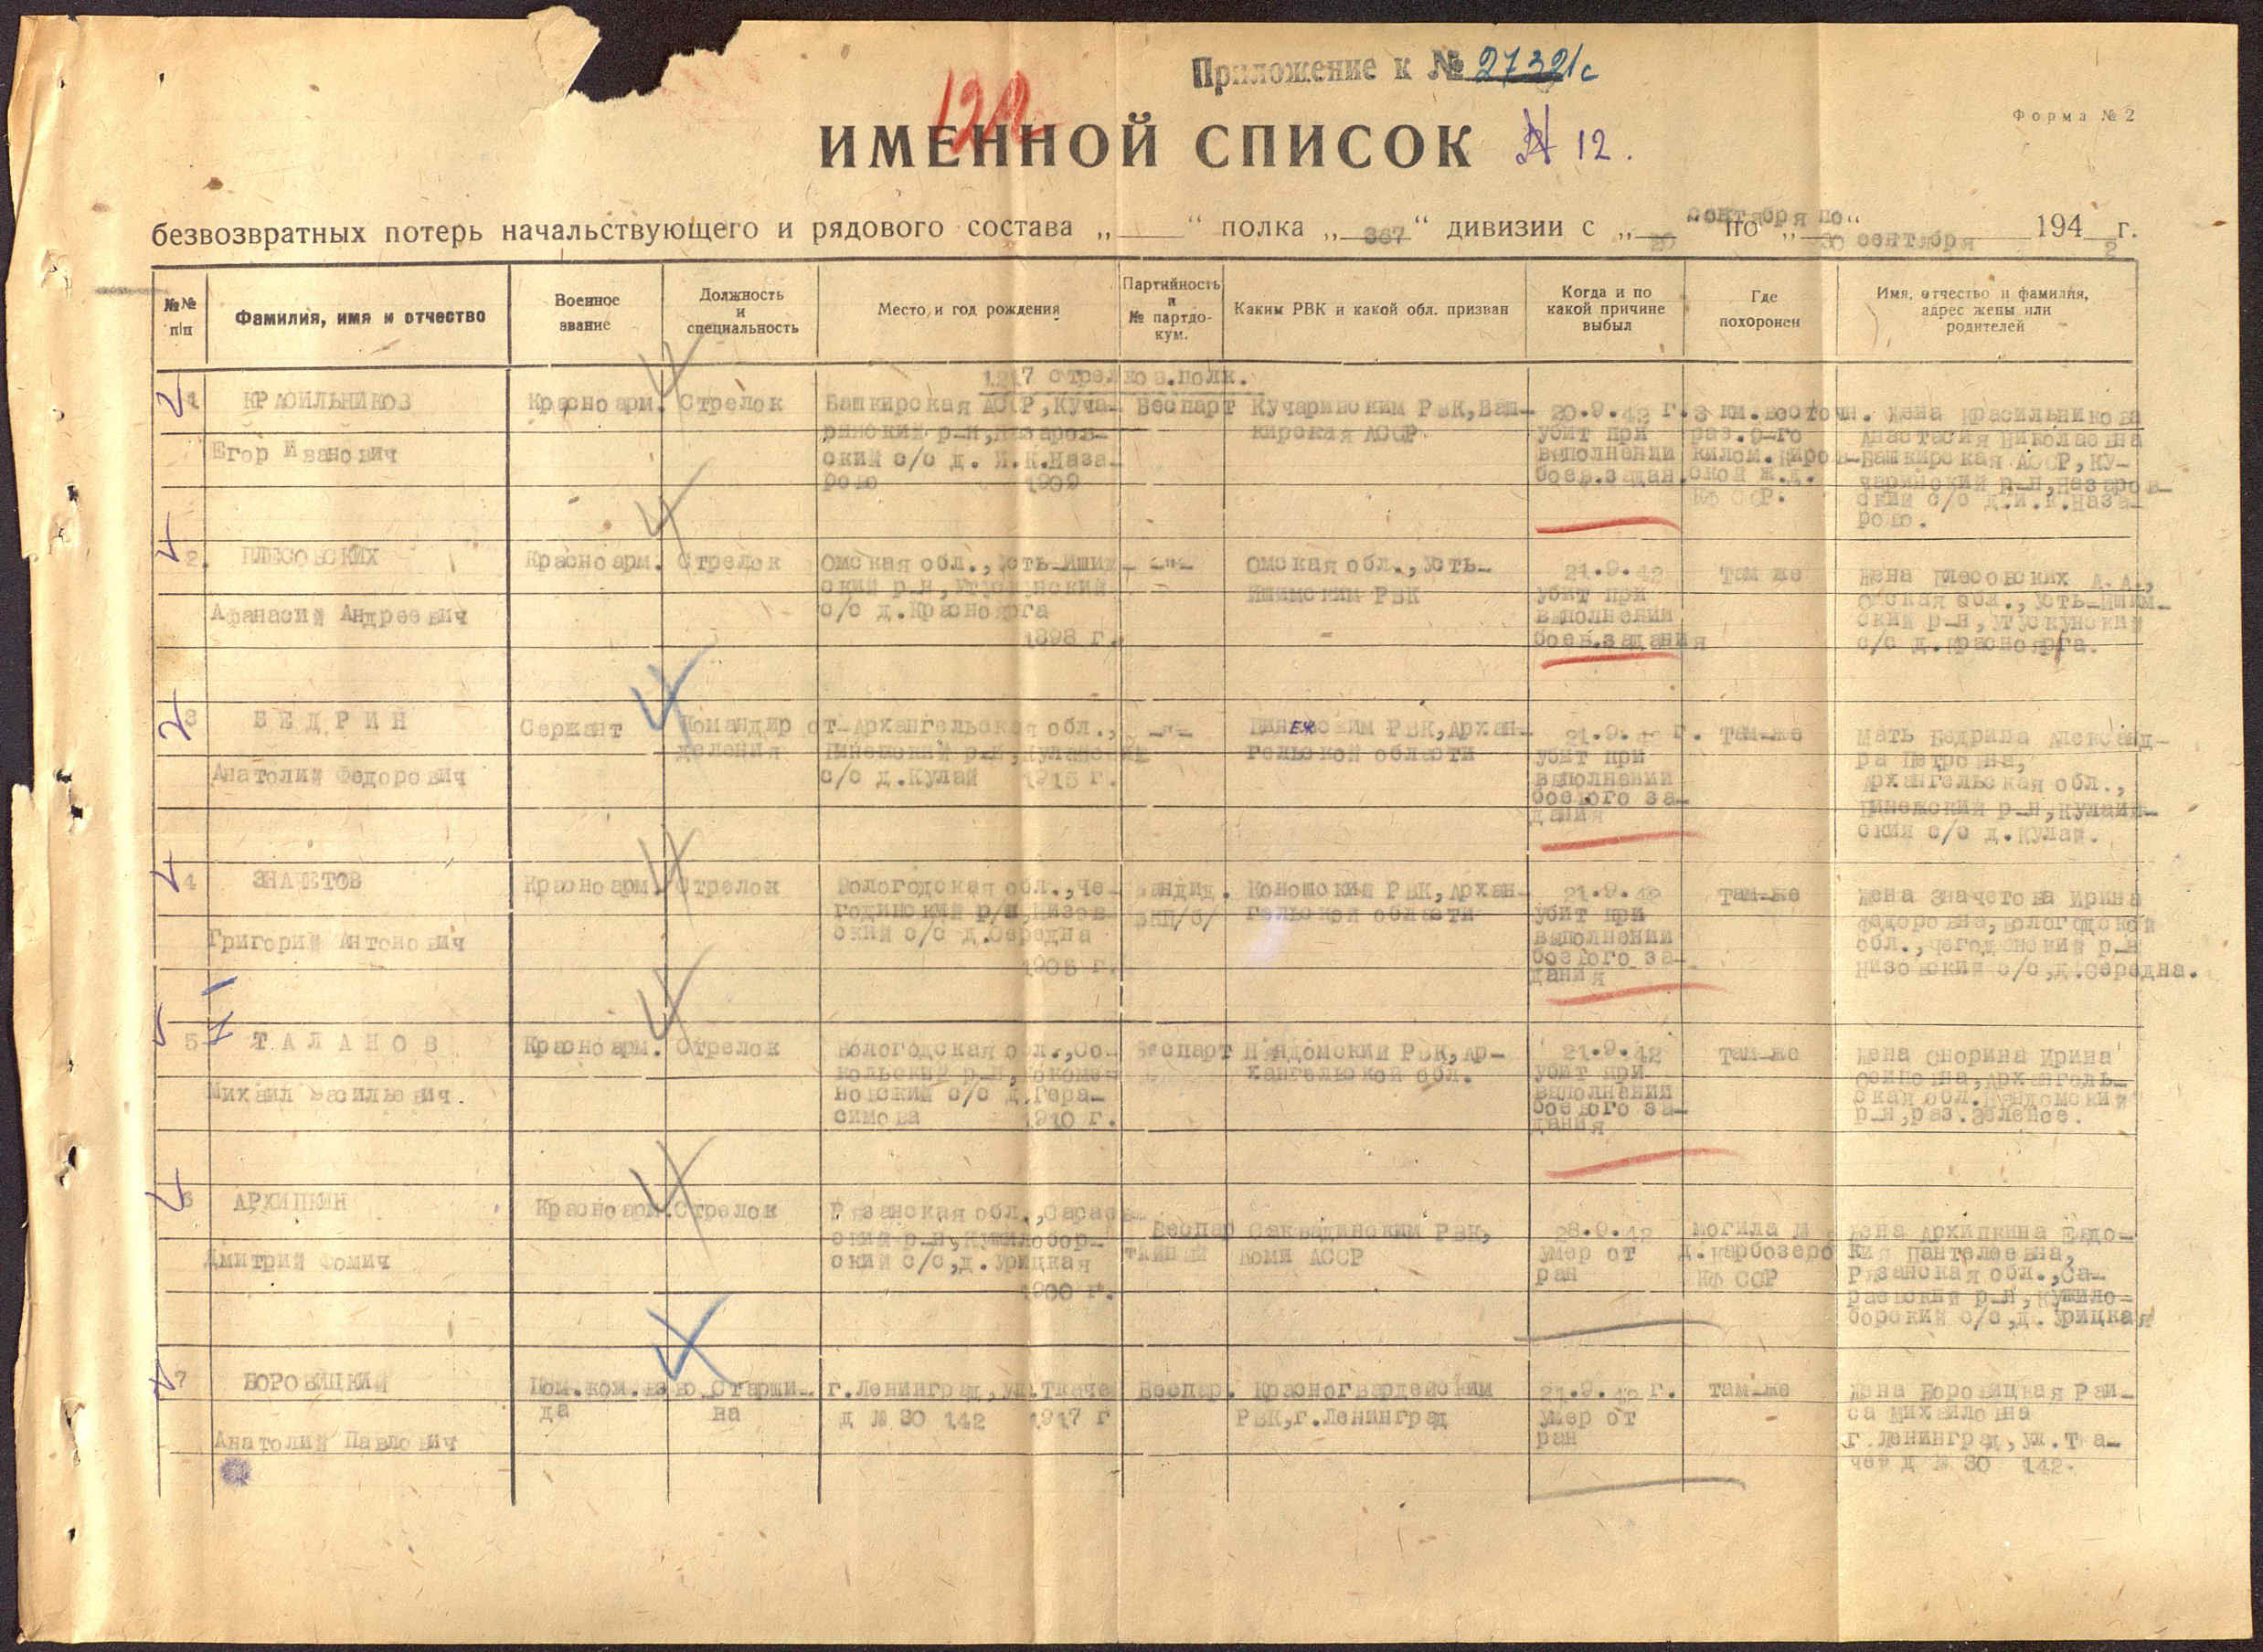 Приложение к № 27321с
122
Форма № 2
ИМЕННОЙ СПИСОК № 12.
безвозвратных потерь начальствующего и рядового состава „ “ полка „ 367 “ дивизии с „ 20 “ сентября по „ 30 сентября 1942 г.
№№ п/п
Фамилия, имя и отчество
Военное звание
Должность и специальность
Место и год рождения
Партийность и № партдокум.
Каким РВК и какой обл. призван
Когда и по какой причине выбыл
Где похоронен
Имя, отчество и фамилия, адрес жены или родителей
1217 стрелков.полк.
1
КРАСИЛЬНИКОВ
Егор Иванович
Красноарм.
Стрелок
Башкирская АССР, Куча-
ринский р-н, Назаров-
ский с/с д. И.К.Наза-
рово 1909
Беспарт
Кучаринским РВК, Баш-
кирская АССР
20.9.42 г.
убит при
выполнении
боев.задан.
3 км.восточн.
раз.9-го
килом. Киров-
ской ж.д.
КФ ССР.
Жена Красильникова
Анастасия Николаевна
Башкирская АССР, Ку-
чаринский р-н, Назаров-
ский с/с д.И.К.Наза-
рово.
2.
ПЛЕСОВСКИХ
Афанасий Андреевич
Красноарм.
Стрелок
Омская обл., Усть-Ишим-
ский р-н, Утускунский
с/с д.Красноярга
1898 г.
-"-
Омская обл., Усть-
Ишимским РВК
21.9.42
убит при
выполнении
боев.задания
Там же
Жена Плесовских А.А.,
Омская обл., Усть-Ишим-
ский р-н, Утускунский
с/с д.Красноярга.
3
БЕДРИН
Анатолий Федорович
Сержант
Командир от-
деления
Архангельская обл.,
Пинежский р-н, Кулайский
с/с д.Кулай 1915 г.
-"-
Пинежским РВК, Архан-
гельской области
21.9.42 г.
убит при
выполнении
боевого за-
дания
Там-же
Мать Бедрина Александ-
ра Петровна,
Архангельская обл.,
Пинежский р-н, Кулай-
ский с/с д.Кулай.
4
ЗНАЧЕТОВ
Григорий Антонович
Красноарм.
Стрелок
Вологодская обл., Че-
годинский р/н, Низов-
ский с/с д.Середна
1905 г.
Кандид.
ВКП/б/
Коношский РВК, Архан-
гельской области
21.9.42
убит при
выполнении
боевого за-
дания
Там-же
Жена Значетова Ирина
Федоровна, Вологодской
обл., Чегодонский р-н
Низовский с/с, д.Середна.
5
ТАЛАНОВ
Михаил Васильевич.
Красноарм.
Стрелок
Вологодская обл., Со-
кольский р-н,
новский с/с д.Гера-
симова 1910 г.
Беспарт
Няндомский РВК, Ар-
хангельской обл.
21.9.42
убит при
выполнении
боевого за-
дания
Там-же
Жена Снорина Ирина
Осиповна, Архангель-
ская обл. Няндомский
р-н, раз.Зеленое.
6
АРХИПКИН
Дмитрий Фомич
Красноарм.
Стрелок
Рязанская обл., Сараев-
ский р-н, Кушилобор-
ский с/с, д. Урицкая
1900 г.
Беспар
тийный
РВК,
Коми АССР
28.9.42
умер от
ран
могила №
д.Карбозеро
КФ ССР
Жена Архипкина Евдо-
кия Пантелеевна,
Рязанская обл., Са-
раевский р-н, Кушило-
борский с/с, д. Урицкая
7
БОРОВИЦКИЙ
Анатолий Павлович
Пом.ком.взво
да
Старши-
на
г.Ленинград, ул.Ткаче
д № 30 142 1917 г
Беспар.
Красногвардейским
РВК, г.Ленинград
21.9.42 г.
умер от
ран
там-же
Жена Боровицкая Раи-
са Михайловна
г.Ленинград, ул.Тка-
чей д № 30 142.